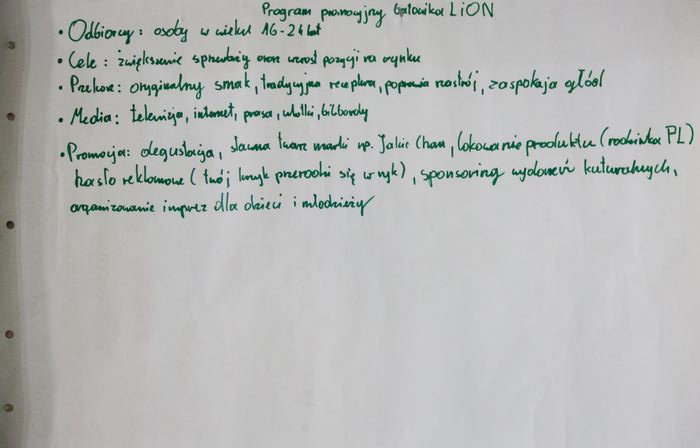 Program promocyjny batonika LiON
• Odbiorcy: osoby w wieku 16-24 lat
• Cele: zwiększenie sprzedaży oraz wzrost pozycji na rynku
• Przekaz: oryginalny smak, tradycyjna receptura, poprawia nastrój, zaspokaja głód
• Media: telewizja, internet, prasa, ulotki, bilbordy
• Promocja: degustacja, sławna twarz marki np. Jakie Chan, lokowanie produktu (rodzinka PL)
hasło reklamowe (twój krzyk przerodzi się w ryk), sponsoring wydarzeń kulturalnych,
organizowanie imprez dla dzieci i młodzieży